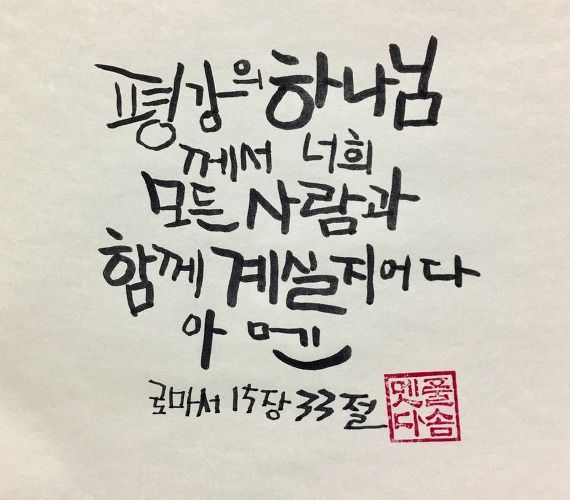 평강의 하나님
께서 너희
모든 사람과
함께 계실지어다
아멘
로마서 15장 33절
멋글
다솜